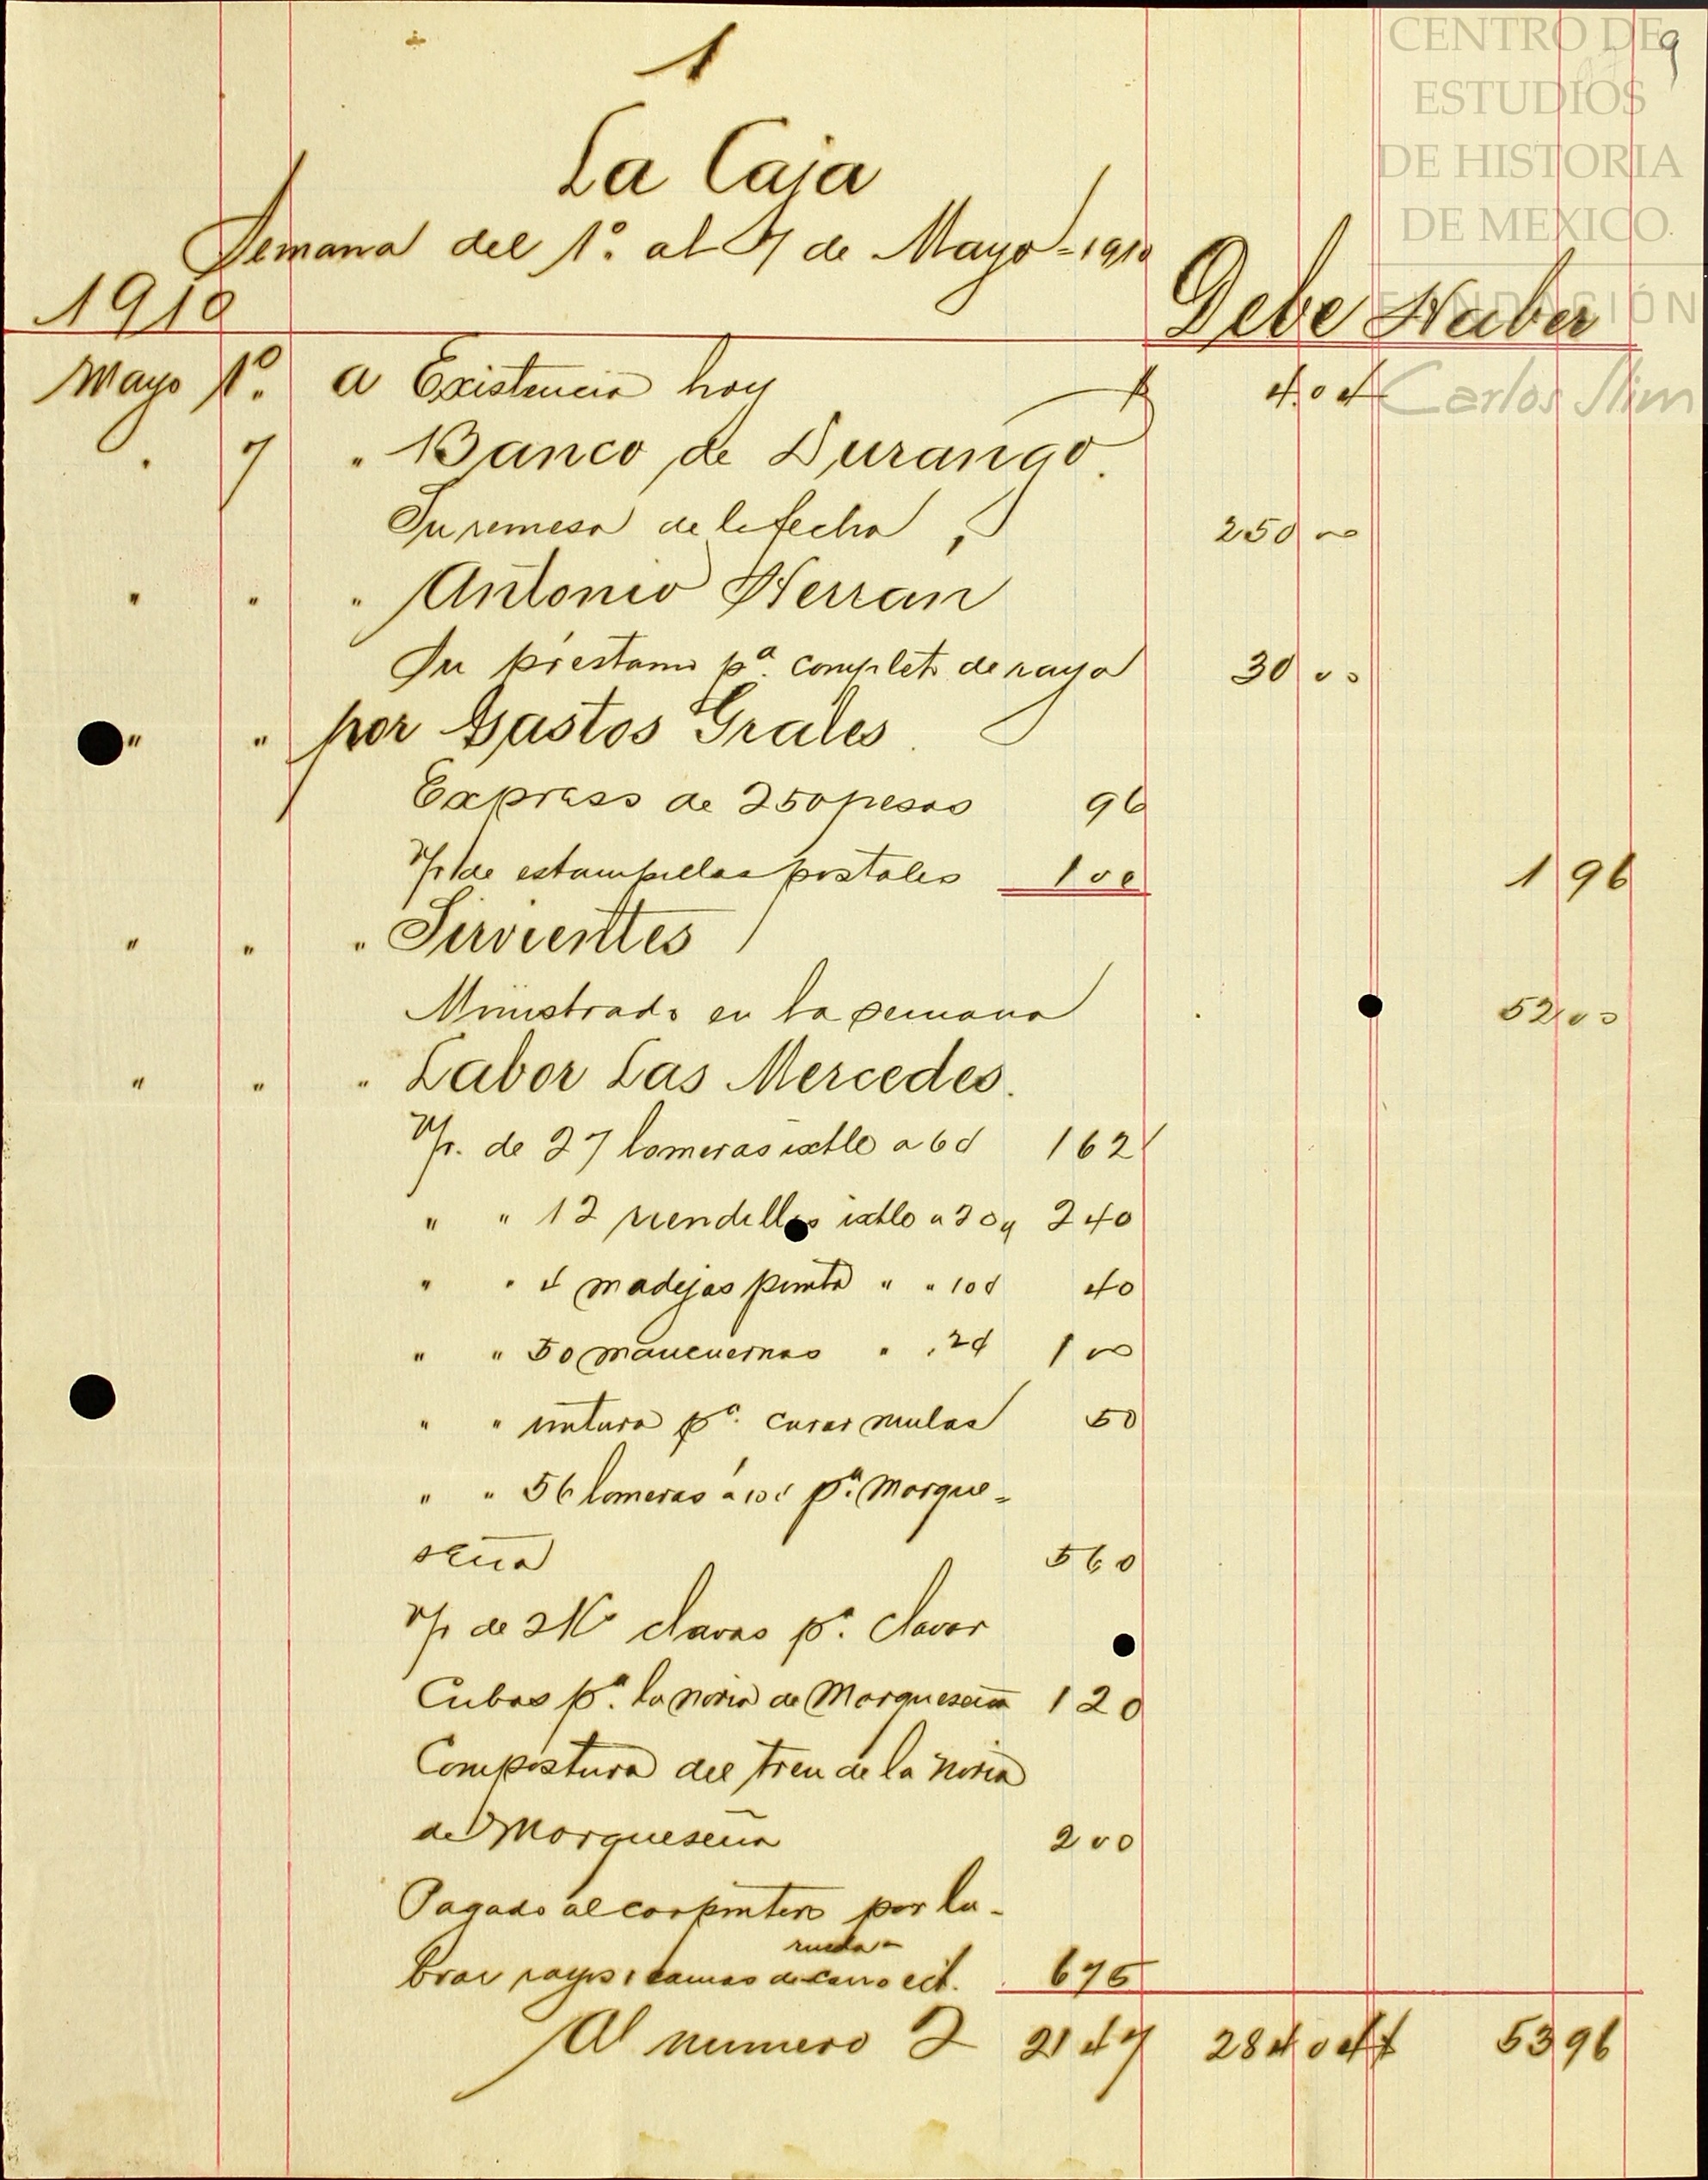 CENTRO DE
ESTUDIOS
DE HISTORIA
DE MEXICO
FUNDACIÓN
Carlos Slim
9
1
La Caja
Semana del 1º. al 7 de Mayo=1910
1910 Debe Haber
Mayo 1º. a Existencia hoy $ 4.04
" 7 " Banco de Durango.
Su remesa de la fecha, 250 00
" " " Antonio Herrán
Su préstamo pª. completo de raya 30 00
" " por Gastos Grales.
Express de 250 pesos 96
V/r de estampillas postales 1 00 1 96
" " " Sirvientes
Ministrado en la semana 52 00
" " " Labor Las Mercedes.
V/r. de 27 lomeras ixtle a 6¢ 1 62
" " 12 riendillas ixtle a 20¢ 2 40
" " 4 madejas " " 10¢ 40
" " 50 mancuernas " " 2¢ 1 00
" " untura pª. curar mulas 50
" " 56 lomeras a 10¢ pª. Marque=
seña 5 60
V/r de 2 Kº clavos pª. clavar
Cubos pª. la noria de Marqueseña 1 20
Compostura del tren de la noria
de Marqueseña 2 00
Pagado al carpintero por la-
brar rayos, camas de ruedas carro ect. 6 75
Al numero 2 21 47 284 04 53 96